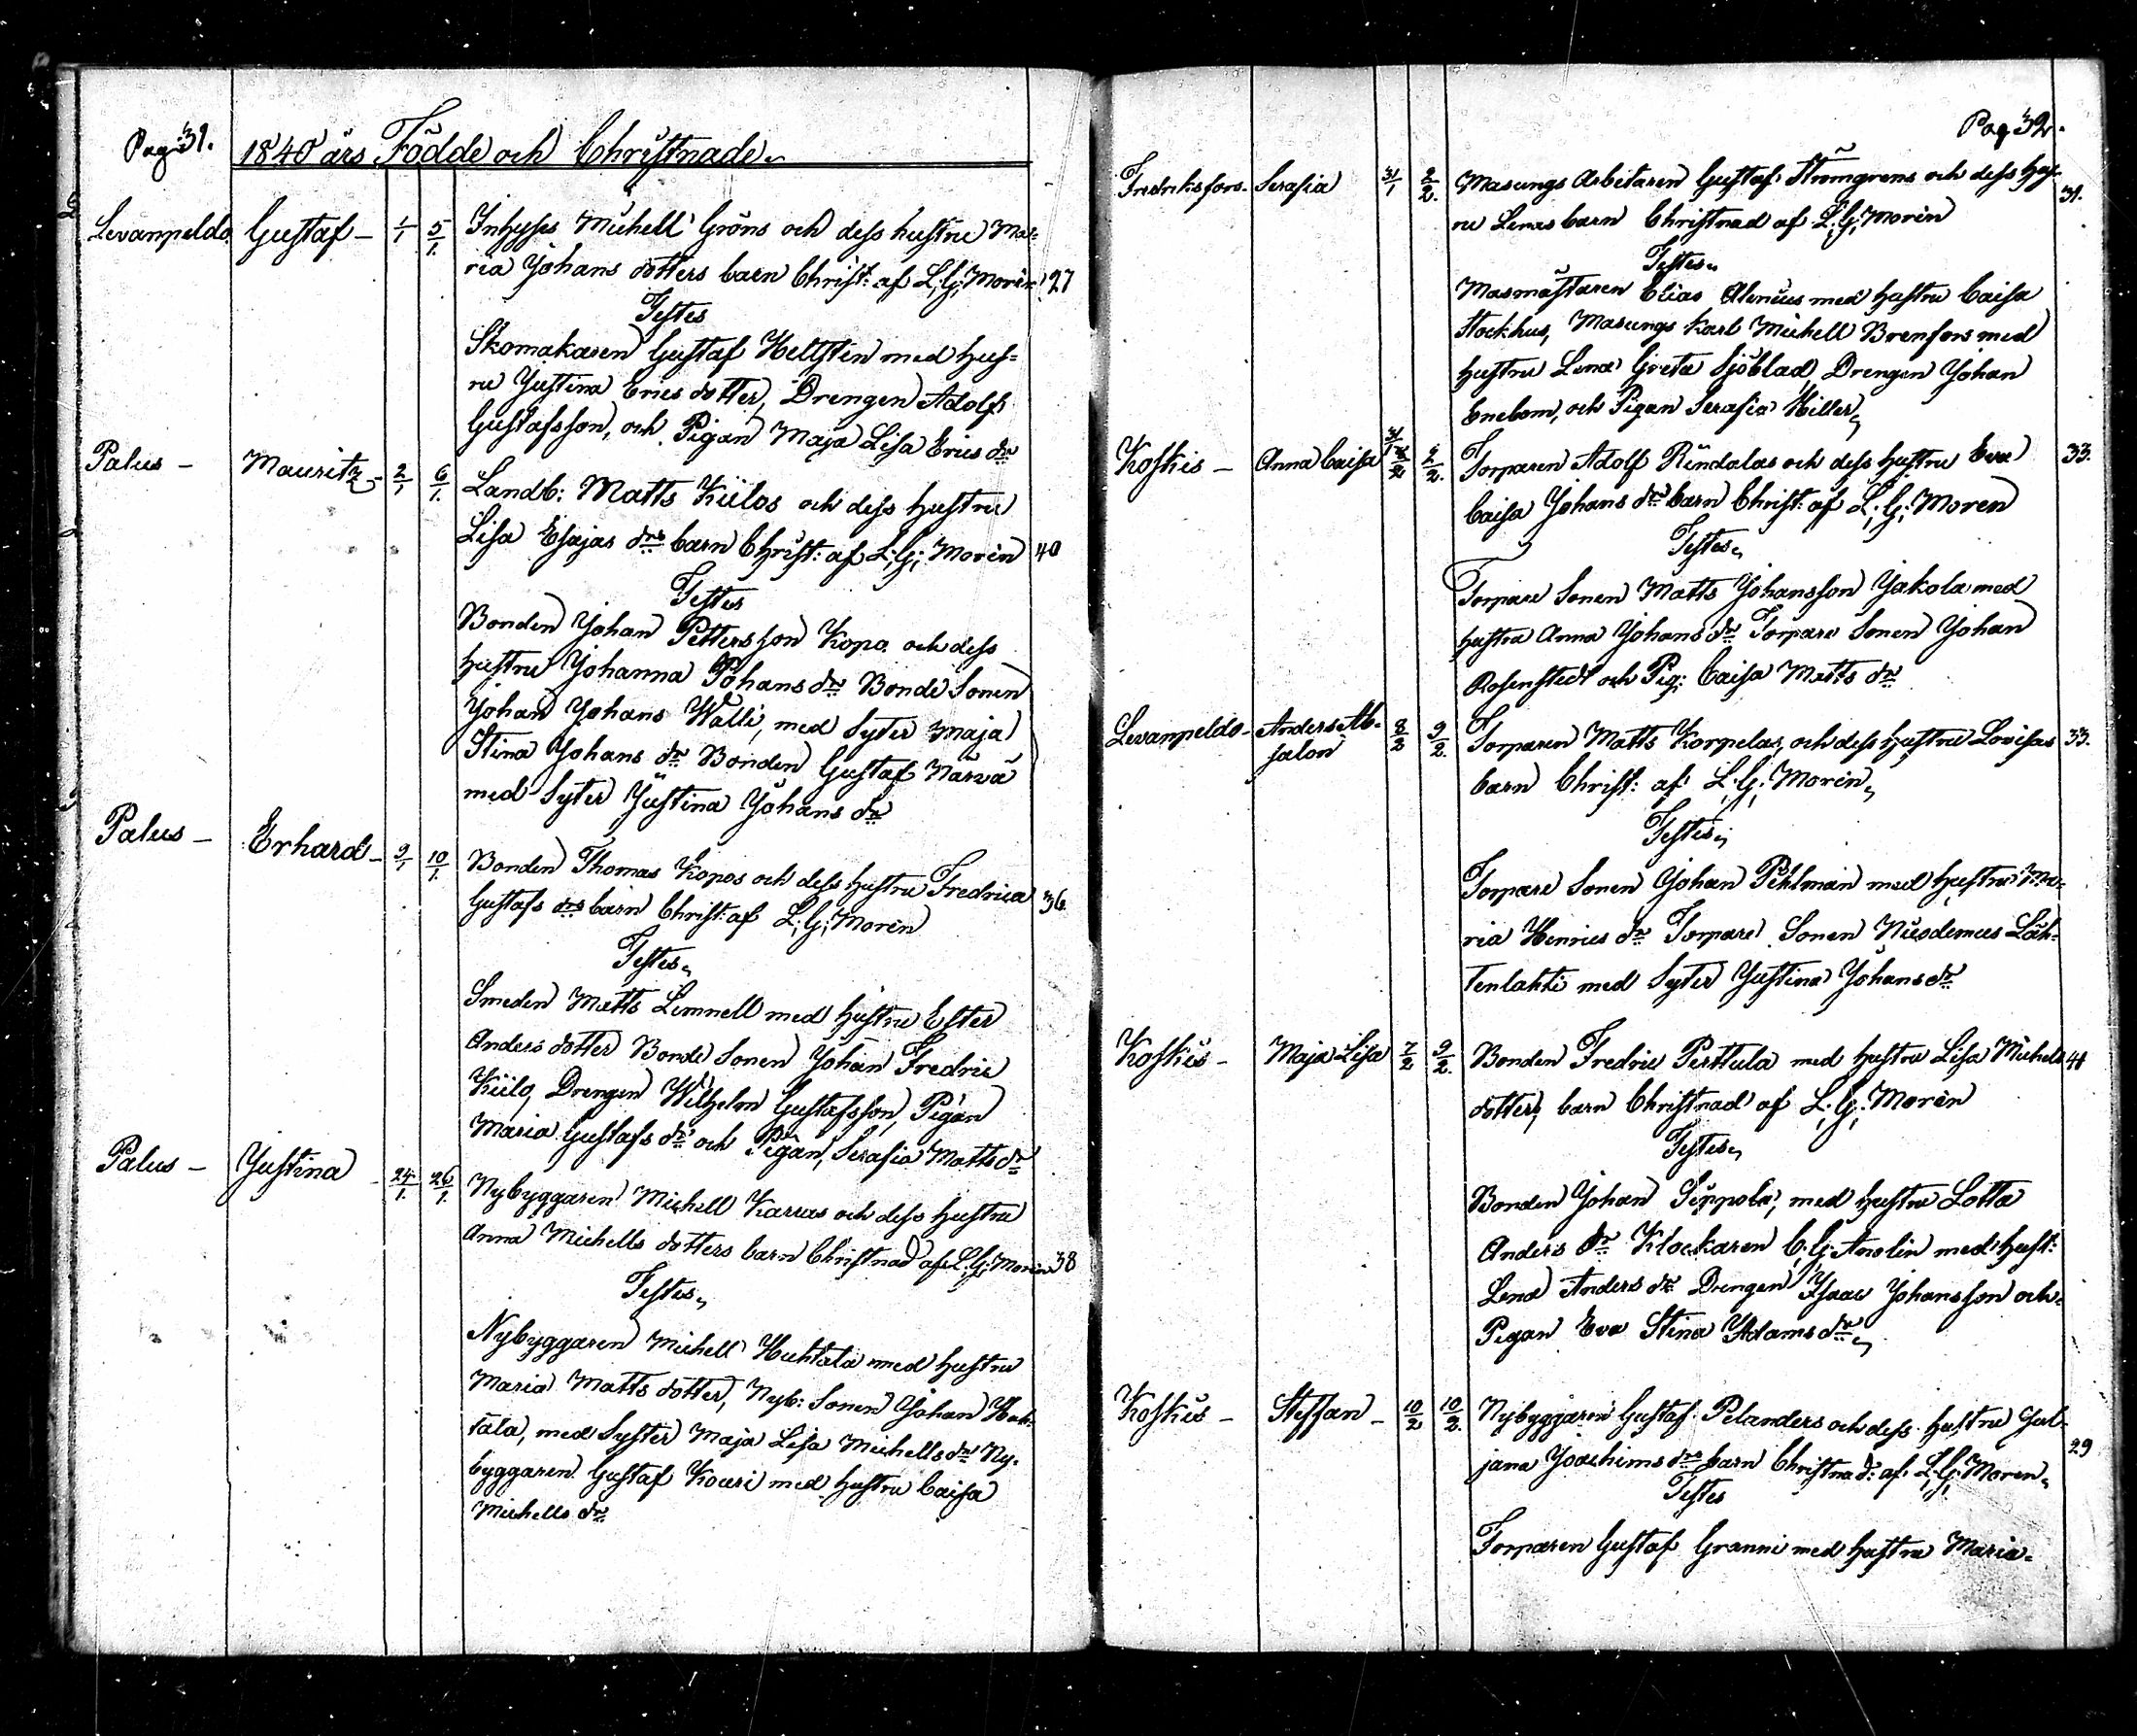 Pag 31.
1840 års Födde och Christnade
Levanpeldo Gustaf – 1/1 5/1. Inhyses Michell Gröns och dess hustru Ma=
ria Johans dotters barn Christ: af L: G: Morén 27
Testes
Skomakaren Gustaf Hellstén med hus=
ru Justina Erics dotter, Drengen Adolf
Gustafsson, och Pigan Maja Lisa Erics dr
Palus – Mauritz – 2/1 6/1. Landb: Matts Kiilos och dess hustru
Lisa Esajas drs barn Christ: af L: G: Morén 40
Testes
Bonden Johan Pettersson Kopo och dess
hustru Johanna Johans dr Bonde Sonen
Johan Johans Walli, med Syter Maja
Stina Johans dr Bonden Gustaf Närvä
med Syter Justina Johans dr
Palus – Erhard – 9/1 10/1. Bonden Thomas Kopos och dess hustru Fredrica 36
Gustafs drs barn Christ: af L: G: Morén
Testes
Smeden Matts Lemnell med hustru Ester
Anders dotter Bonde Sonen Johan Fredric
Kiilo, Drengen Wilhelm Gustafsson, Pigan
Maria Gustafs dr och Pigan, Serafia Matts dr
Palus – Justina – 24/1. 26/1. Nybyggaren Michell Karras och dess hustru
Anna Michells dotters barn Christnad af L: G: Morén 38
Testes
Nybyggaren Michell Huhtala med hustru
Maria Matts dotter, Nyb: Sonen Johan Huh=
tala, med Syster Maja Lisa Michells dr Ny=
byggaren Gustaf Koari med hustru Caisa
Michells dr
Pag 32.
Fredriksfors. Serafia 31/1 2/2. Masungs Arbetaren Gustaf Strömgrens och dess hus=
ru Lenas barn Christnad af L: G: Morén 31.
Testes
Masmästaren Elias Alenius med hustru Caisa
Stockhus, Masungs Karl Michell Brenfors med
hustru Lena Greta Sjöblad, Drengen Johan
Enebom, och Pigan Serafia Hiller
Koskis – Anna Caisa 31/1 2/2. Torparen Adolf Rindalas och dess hustru Eva 33.
Caisa Johans drs barn Christ: af L: G: Moren
Testes
Torpare Sonen Matts Johansson Jakola med
hustru Anna Johans dr Torpare Sonen Johan
Rosenstedt och Pig: Caisa Matts dr
Levanpeldo – Anders Ab= 8/2 9/2. Torparen Matts Korpelas, och dess hustru Lovisas 33.
salon barn Christ: af L: G: Morén
Testes
Torpare Sonen Johan Pihlman med hustru Ma=
ria Henrics dr Torpare Sonen Nicodemus Läh=
tenlahti med Syter Justina Johans dr
Koskis – Maja Lisa 7/2 9/2. Bonden Fredric Perttula med hustru Lisa Michels 41
dotters, barn Christnad af L: G: Morén
Testes
Bonden Johan Seppola, med hustru Lotta
Anders dr Klockaren C: G: Anolin med hust:
Lena Anders dr Drengen Isaac Johansson och
Pigan Eva Stina Adams dr
Koskis – Steffan – 10/2 10/2. Nybyggaren Gustaf Pelanders och dess hustru Jul=
jana Joachims drs barn Christnad: af L: G: Moren 29
Testes
Torparen Gustaf Granni med hustru Maria